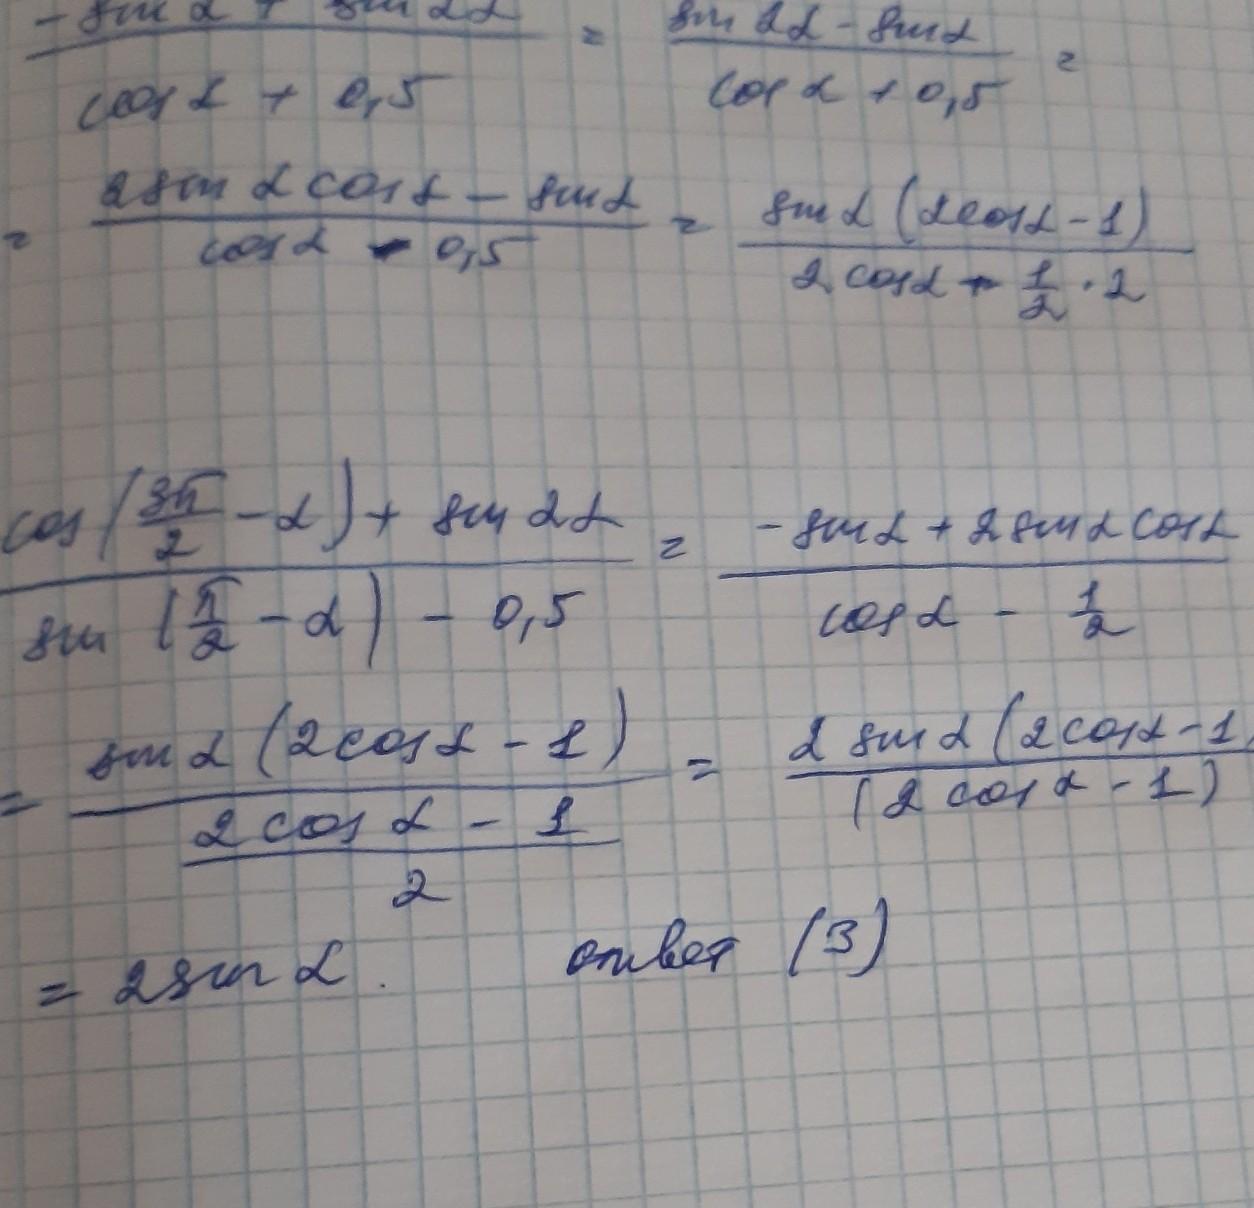 -sin α + sin 2α / cos α + 0,5 = sin 2α - sin α / cos α + 0,5 =
= 2 sin α cos α - sin α / cos α - 0,5 = sin α (2 cos α - 1) / 2 cos α - 1/2 · 2
cos (3π/2 - α) + sin 2α / sin (π/2 - α) - 0,5 = -sin α + 2 sin α cos α / cos α - 1/2
= sin α (2 cos α - 1) / 2 cos α - 1 / 2 = 2 sin α (2 cos α - 1) / (2 cos α - 1)
= 2 sin α. ответ (3)